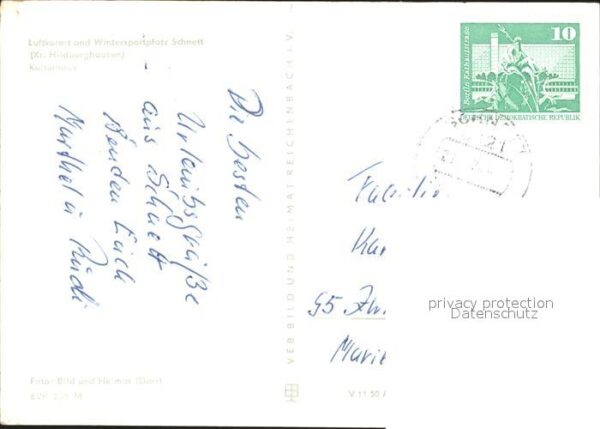 Luftkurort und Wintersportplatz Schnett
(Kr. Hildburghausen)
Kulturhaus
Die besten
Urlaubsgrüße
aus Schnett
senden Euch
Marthel u. Rudi
Foto: Bild und Heimat (Dorr)
VEB BILD UND HEIMAT REICHENBACH I. V.
V 11 50
10
Berlin-Rathausstraße
DEUTSCHE DEMOKRATISCHE REPUBLIK
Familie
95
privacy protection
Datenschutz